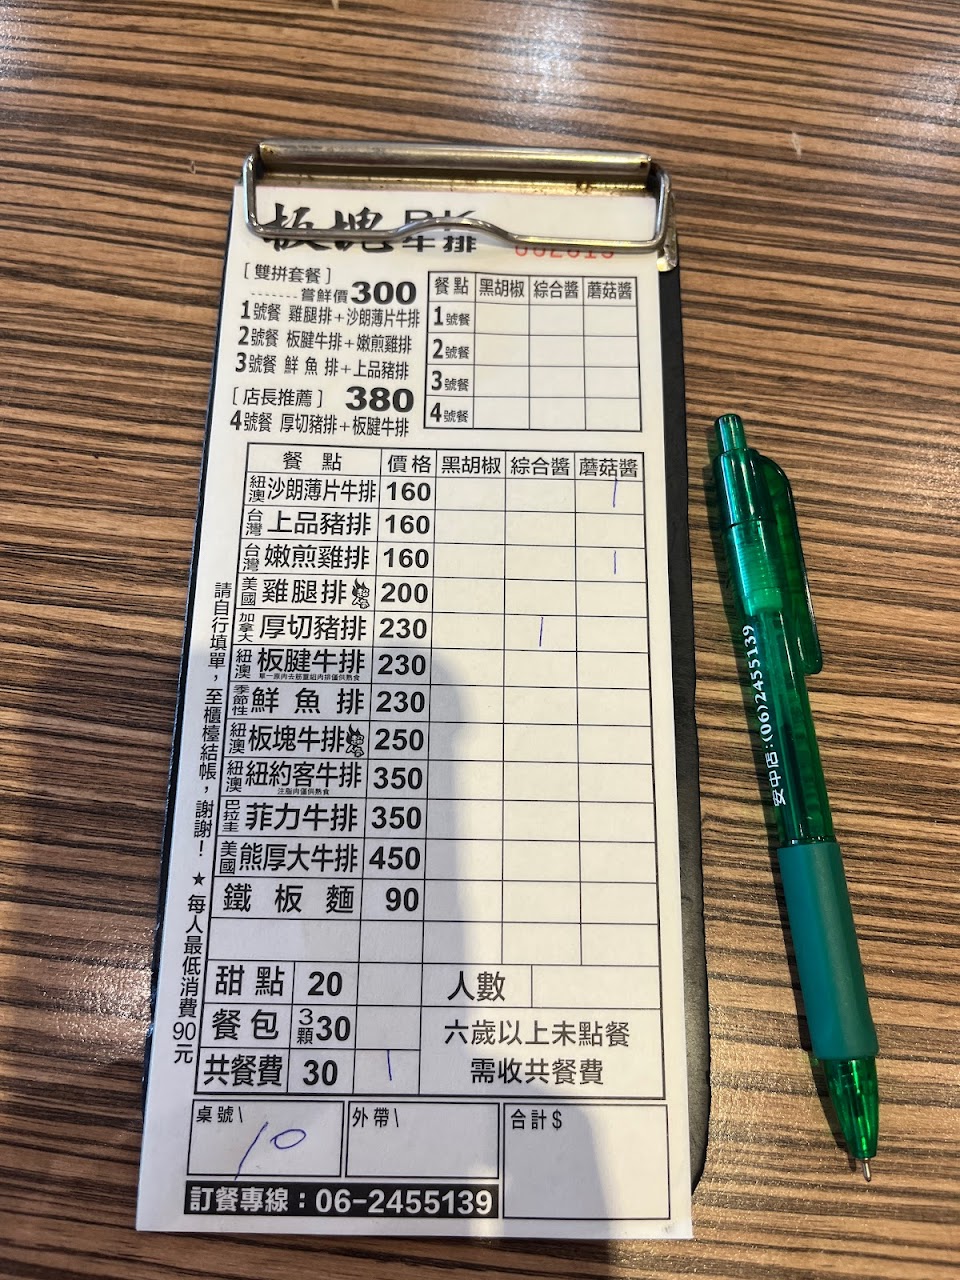 板塊 牛排
[雙拼套餐]
-------嘗鮮價 300
1號餐 雞腿排+沙朗薄片牛排
2號餐 板腱牛排+嫩煎雞排
3號餐 鮮魚排+上品豬排
[店長推薦] 380
4號餐 厚切豬排+板腱牛排
餐點 黑胡椒 綜合醬 蘑菇醬
1號餐
2號餐
3號餐
4號餐
餐點 價格 黑胡椒 綜合醬 蘑菇醬
紐澳 沙朗薄片牛排 160 1
台灣 上品豬排 160
台灣 嫩煎雞排 160 1
美國 雞腿排 200
加拿大 厚切豬排 230 1
紐澳 板腱牛排 230
季節性 鮮魚排 230
紐澳 板塊牛排 250
紐澳 紐約客牛排 350
巴拉圭 菲力牛排 350
美國 熊厚大牛排 450
鐵板麵 90
甜點 20 人數
餐包 3顆 30
共餐費 30 1
六歲以上未點餐
需收共餐費
桌號\ 10
外帶\
合計$
訂餐專線：06-2455139
請自行填單，至櫃檯結帳，謝謝！★每人最低消費90元
安中店:(06)2455139